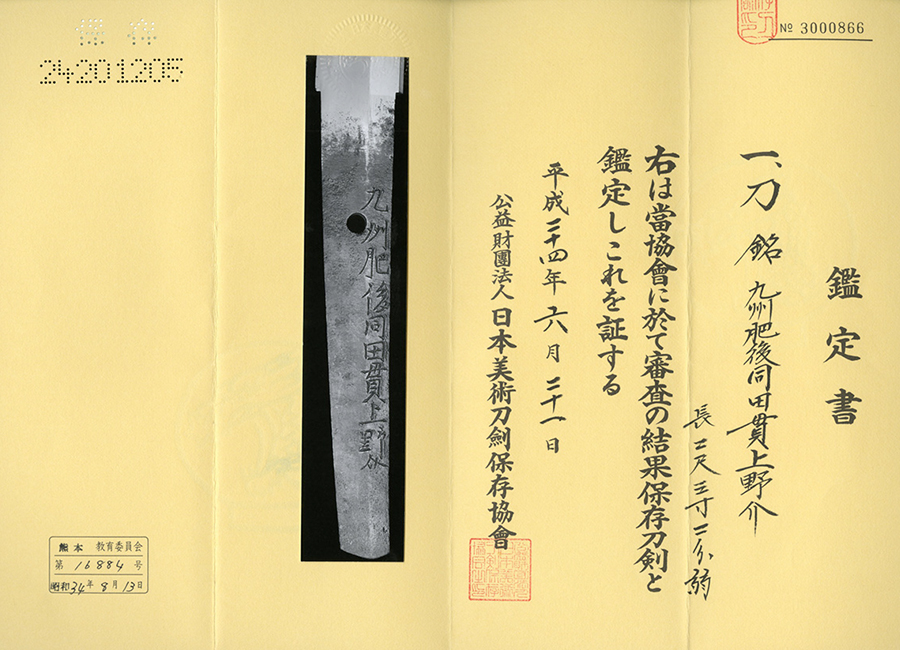 № 3000866
鑑定書
一、刀 銘 九州肥後同田貫上野介
長二尺三寸二分弱
右は當協會に於て審査の結果保存刀剣と
鑑定しこれを証する
平成二十四年六月二十一日
公益財團法人日本美術刀劍保存協會
九州肥後同田貫上野介
保存
24201205
熊本 教育委員会
第16884号
昭和34年8月13日